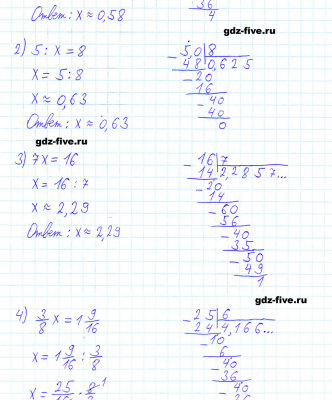 Ответ: x ≈ 0,58
36
4
gdz-five.ru
2) 5 : x = 8
x = 5 : 8
x ≈ 0,63
Ответ: x ≈ 0,63
gdz-five.ru
- 5,0 | 8
48 0,625
- 20
16
- 40
40
0
3) 7x = 16
x = 16 : 7
x ≈ 2,29
Ответ: x ≈ 2,29
- 16 | 7
14 2,2857...
- 20
14
- 60
56
- 40
35
- 50
49
1
gdz-five.ru
4) 3/8 x = 1 9/16
x = 1 9/16 : 3/8
- 25 | 6
24 4,166...
- 10
6
- 40
36
- 40